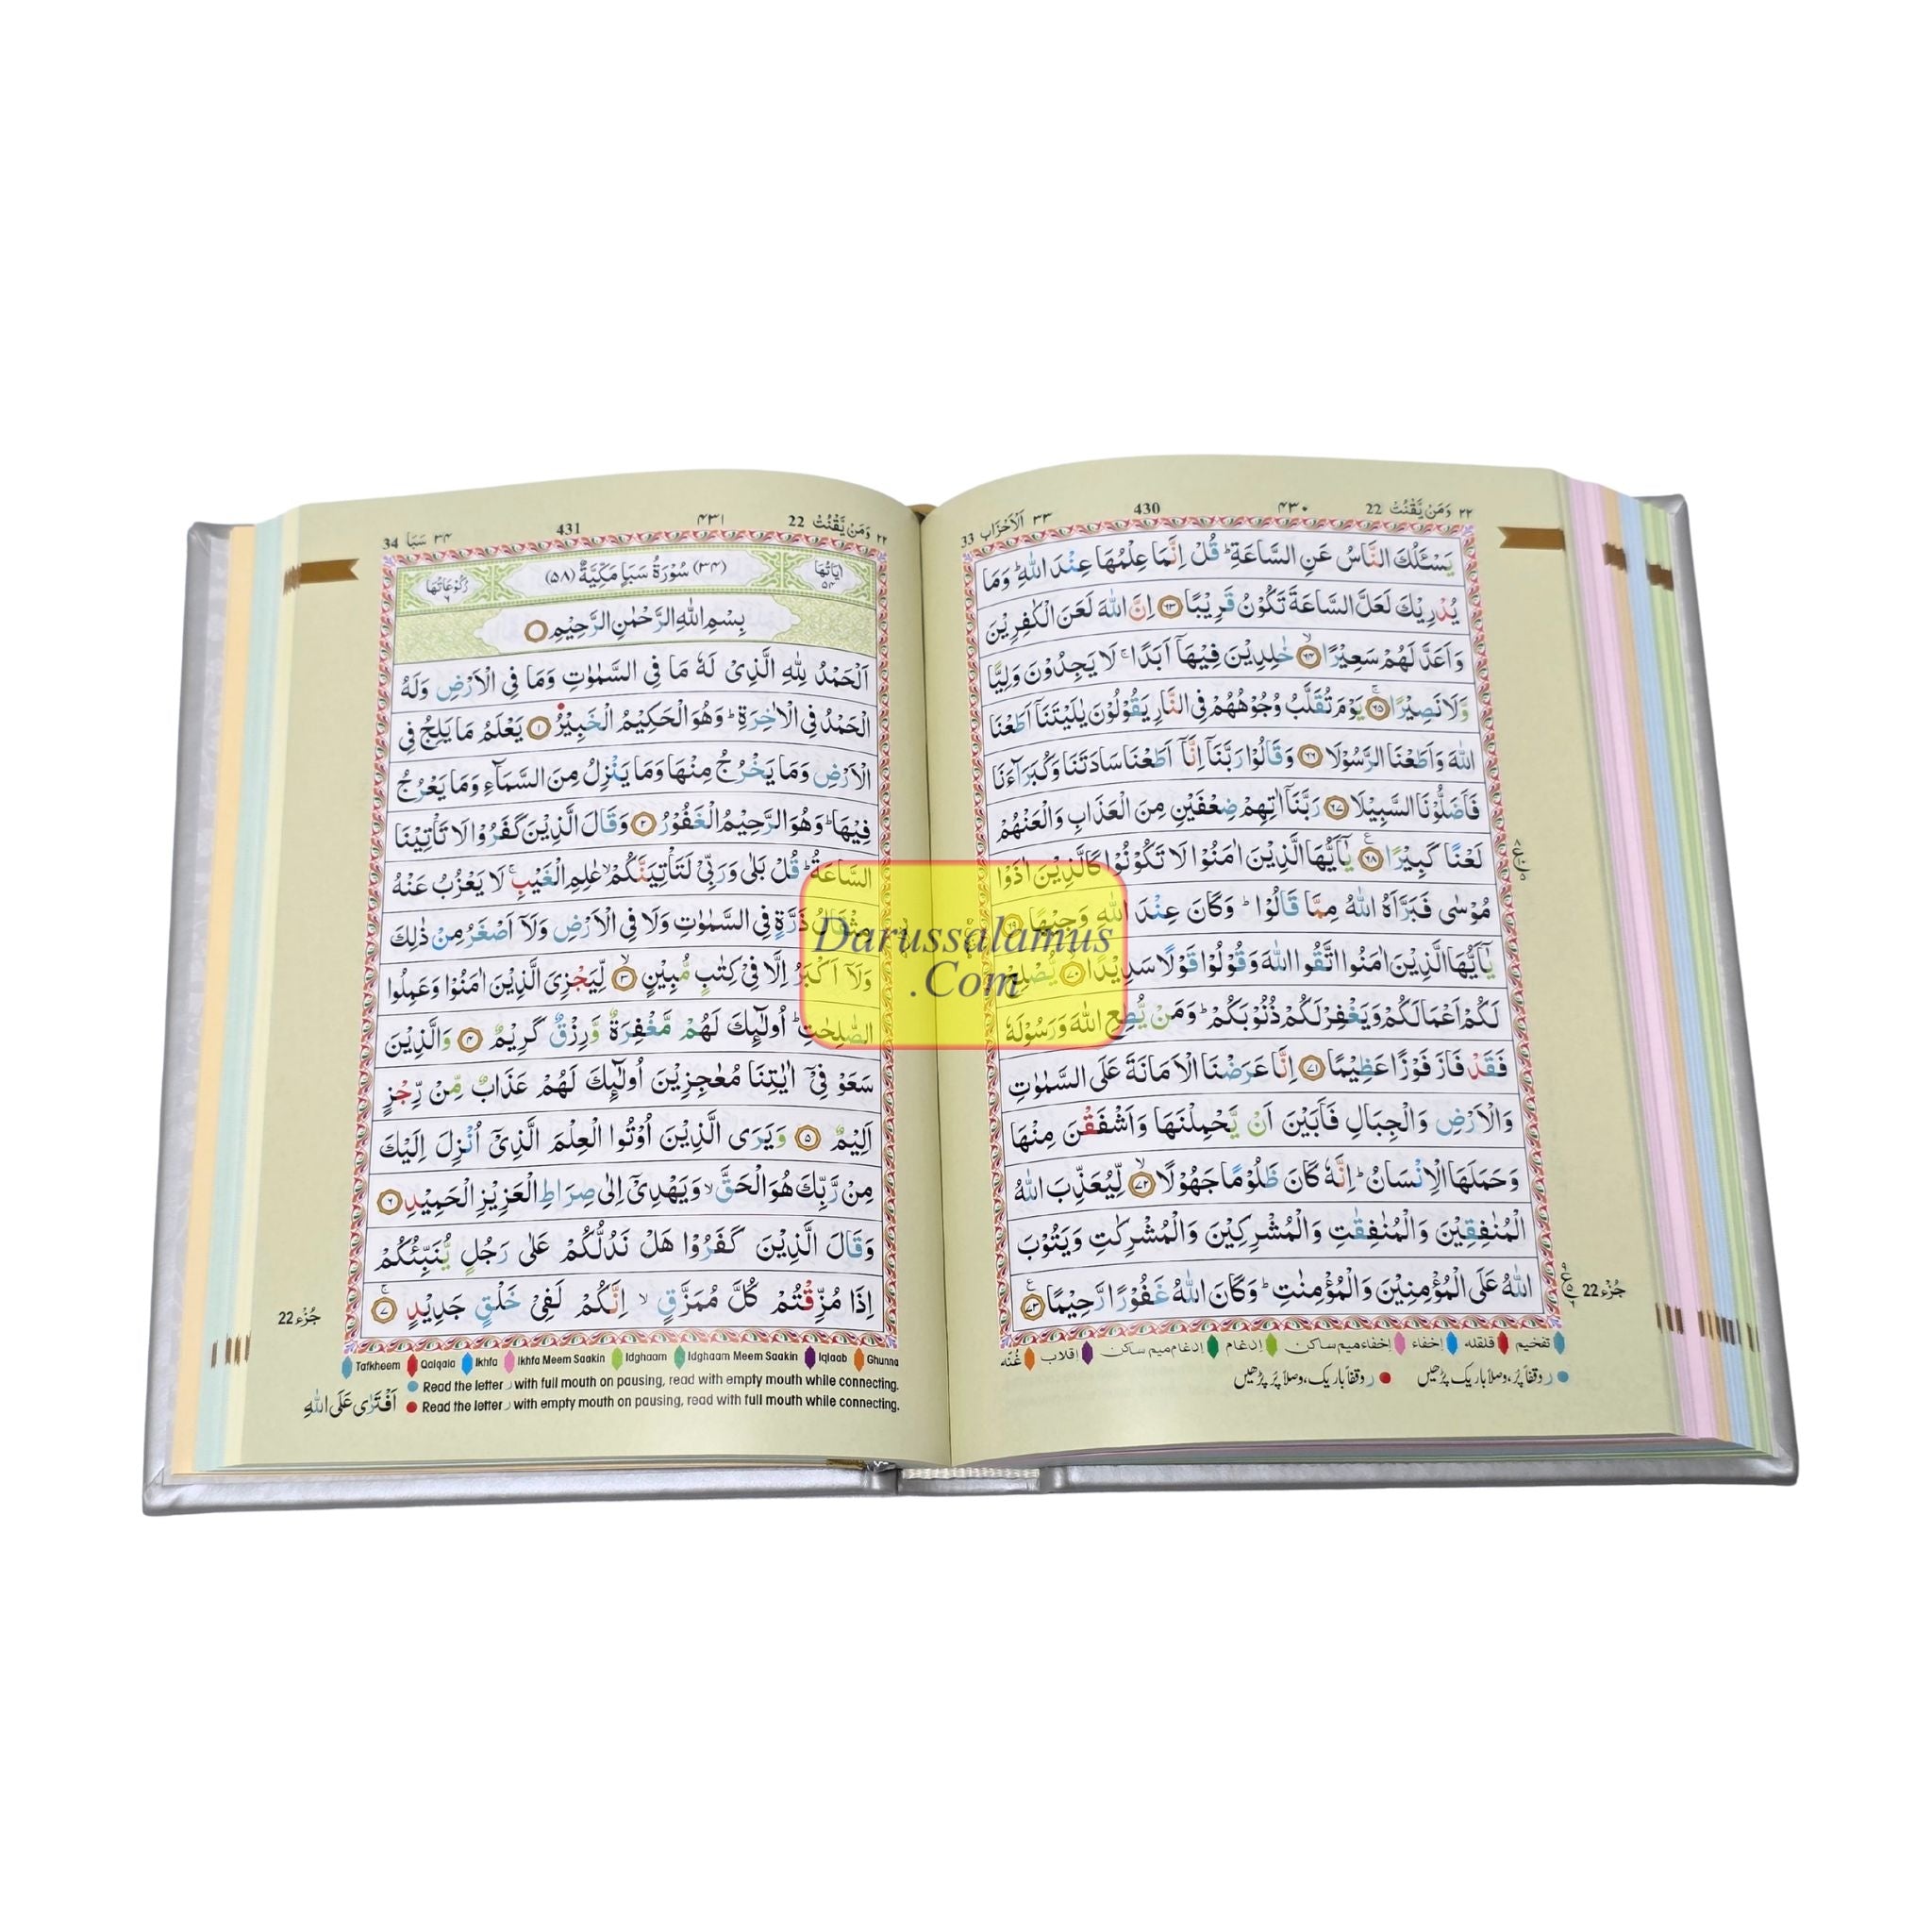 ٢٢ وَمَنْ يَّقْنُتْ 22
٤٣٠
430
٣٣ اَلْاَحْزَاب 33
يَسْـَٔلُكَ النَّاسُ عَنِ السَّاعَةِ ؕ قُلْ اِنَّمَا عِلْمُهَا عِنْدَ اللّٰهِ ؕ وَمَا
يُدْرِيْكَ لَعَلَّ السَّاعَةَ تَكُوْنُ قَرِيْبًا ۝٦٣ اِنَّ اللّٰهَ لَعَنَ الْكٰفِرِيْنَ
وَاَعَدَّ لَهُمْ سَعِيْرًا ۝٦٤ۙ خٰلِدِيْنَ فِيْهَاۤ اَبَدًا ۚ لَا يَجِدُوْنَ وَلِيًّا
وَّلَا نَصِيْرًا ۝٦٥ۚ يَوْمَ تُقَلَّبُ وُجُوْهُهُمْ فِى النَّارِ يَقُوْلُوْنَ يٰلَيْتَنَاۤ اَطَعْنَا
اللّٰهَ وَاَطَعْنَا الرَّسُوْلَا ۝٦٦ وَقَالُوْا رَبَّنَاۤ اِنَّاۤ اَطَعْنَا سَادَتَنَا وَكُبَرَآءَنَا
فَاَضَلُّوْنَا السَّبِيْلَا ۝٦٧ رَبَّنَاۤ اٰتِهِمْ ضِعْفَيْنِ مِنَ الْعَذَابِ وَالْعَنْهُمْ
لَعْنًا كَبِيْرًا ۝٦٨ يٰۤاَيُّهَا الَّذِيْنَ اٰمَنُوْا لَا تَكُوْنُوْا كَالَّذِيْنَ اٰذَوْا
مُوْسٰى فَبَرَّاَهُ اللّٰهُ مِمَّا قَالُوْا ؕ وَكَانَ عِنْدَ اللّٰهِ وَجِيْهًا
يٰۤاَيُّهَا الَّذِيْنَ اٰمَنُوا اتَّقُوا اللّٰهَ وَقُوْلُوْا قَوْلًا سَدِيْدًا ۝٧٠ يُّصْلِحْ
لَكُمْ اَعْمَالَكُمْ وَيَغْفِرْ لَكُمْ ذُنُوْبَكُمْ ؕ وَمَنْ يُّطِعِ اللّٰهَ وَرَسُوْلَهٗ
فَقَدْ فَازَ فَوْزًا عَظِيْمًا ۝٧١ اِنَّا عَرَضْنَا الْاَمَانَةَ عَلَى السَّمٰوٰتِ
وَالْاَرْضِ وَالْجِبَالِ فَاَبَيْنَ اَنْ يَّحْمِلْنَهَا وَاَشْفَقْنَ مِنْهَا
وَحَمَلَهَا الْاِنْسَانُ ؕ اِنَّهٗ كَانَ ظَلُوْمًا جَهُوْلًا ۝٧٢ۙ لِّيُعَذِّبَ اللّٰهُ
الْمُنٰفِقِيْنَ وَالْمُنٰفِقٰتِ وَالْمُشْرِكِيْنَ وَالْمُشْرِكٰتِ وَيَتُوْبَ
اللّٰهُ عَلَى الْمُؤْمِنِيْنَ وَالْمُؤْمِنٰتِ ؕ وَكَانَ اللّٰهُ غَفُوْرًا رَّحِيْمًا ۝٧٣
جُزْء 22
تفخیم قلقله إخفاء إخفاء ميم ساكن إدغام إدغام ميم ساكن إقلاب غُنّه
ر وقفاً پُر، وصلاً باریک پڑھیں ر وقفاً باریک، وصلاً پُر پڑھیں
٢٢ وَمَنْ يَّقْنُتْ 22
٤٣١
431
٣٤ سَبَا 34
اٰيَاتُهَا ٥٤
(٣٤) سُوْرَةُ سَبَاٍ مَكِّيَّةٌ (٥٨)
رُكُوْعَاتُهَا ٦
بِسْمِ اللّٰهِ الرَّحْمٰنِ الرَّحِيْمِ
اَلْحَمْدُ لِلّٰهِ الَّذِىْ لَهٗ مَا فِى السَّمٰوٰتِ وَمَا فِى الْاَرْضِ وَلَهُ
الْحَمْدُ فِى الْاٰخِرَةِ ؕ وَهُوَ الْحَكِيْمُ الْخَبِيْرُ ۝١ يَعْلَمُ مَا يَلِجُ فِى
الْاَرْضِ وَمَا يَخْرُجُ مِنْهَا وَمَا يَنْزِلُ مِنَ السَّمَآءِ وَمَا يَعْرُجُ
فِيْهَا ؕ وَهُوَ الرَّحِيْمُ الْغَفُوْرُ ۝٢ وَقَالَ الَّذِيْنَ كَفَرُوْا لَا تَاْتِيْنَا
السَّاعَةُ ؕ قُلْ بَلٰى وَرَبِّىْ لَتَاْتِيَنَّكُمْ ۙ عٰلِمِ الْغَيْبِ ۚ لَا يَعْزُبُ عَنْهُ
مِثْقَالُ ذَرَّةٍ فِى السَّمٰوٰتِ وَلَا فِى الْاَرْضِ وَلَاۤ اَصْغَرُ مِنْ ذٰلِكَ
وَلَاۤ اَكْبَرُ اِلَّا فِىْ كِتٰبٍ مُّبِيْنٍ ۝٣ۙ لِّيَجْزِىَ الَّذِيْنَ اٰمَنُوْا وَعَمِلُوا
الصّٰلِحٰتِ ؕ اُولٰٓئِكَ لَهُمْ مَّغْفِرَةٌ وَّرِزْقٌ كَرِيْمٌ ۝٤ وَالَّذِيْنَ
سَعَوْ فِىْۤ اٰيٰتِنَا مُعٰجِزِيْنَ اُولٰٓئِكَ لَهُمْ عَذَابٌ مِّنْ رِّجْزٍ
اَلِيْمٌ ۝٥ وَيَرَى الَّذِيْنَ اُوْتُوا الْعِلْمَ الَّذِىْۤ اُنْزِلَ اِلَيْكَ
مِنْ رَّبِّكَ هُوَ الْحَقَّ ۙ وَيَهْدِىْۤ اِلٰى صِرَاطِ الْعَزِيْزِ الْحَمِيْدِ ۝٦
وَقَالَ الَّذِيْنَ كَفَرُوْا هَلْ نَدُلُّكُمْ عَلٰى رَجُلٍ يُّنَبِّئُكُمْ
اِذَا مُزِّقْتُمْ كُلَّ مُمَزَّقٍ ۙ اِنَّكُمْ لَفِىْ خَلْقٍ جَدِيْدٍ ۝٧ۚ
جُزْء 22
Tafkheem Qalqala Ikhfa Ikhfa Meem Saakin Idghaam Idghaam Meem Saakin Iqlaab Ghunna
Read the letter ر with full mouth on pausing, read with empty mouth while connecting.
Read the letter ر with empty mouth on pausing, read with full mouth while connecting.
اَفْتَرٰى عَلَى اللّٰهِ
Darussalamus
.Com